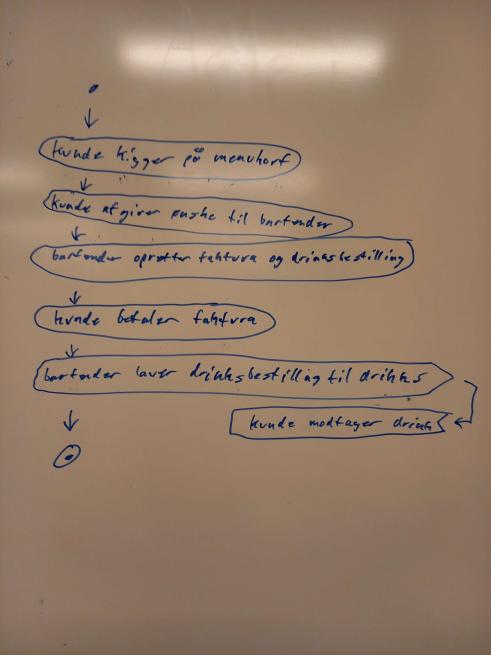 kunde kigger på menukort
kunde afgiver ønske til bartender
bartender opretter faktura og drinksbestilling
kunde betaler faktura
bartender laver drinksbestilling til drinks
kunde modtager drink